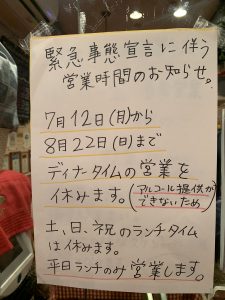 緊急事態宣言に伴う
営業時間のお知らせ。
7月12日(月)から
8月22日(日)まで
ディナータイムの営業を
休みます。(アルコール提供が
できないため)
土、日、祝のランチタイム
は休みます。
平日ランチのみ営業します。